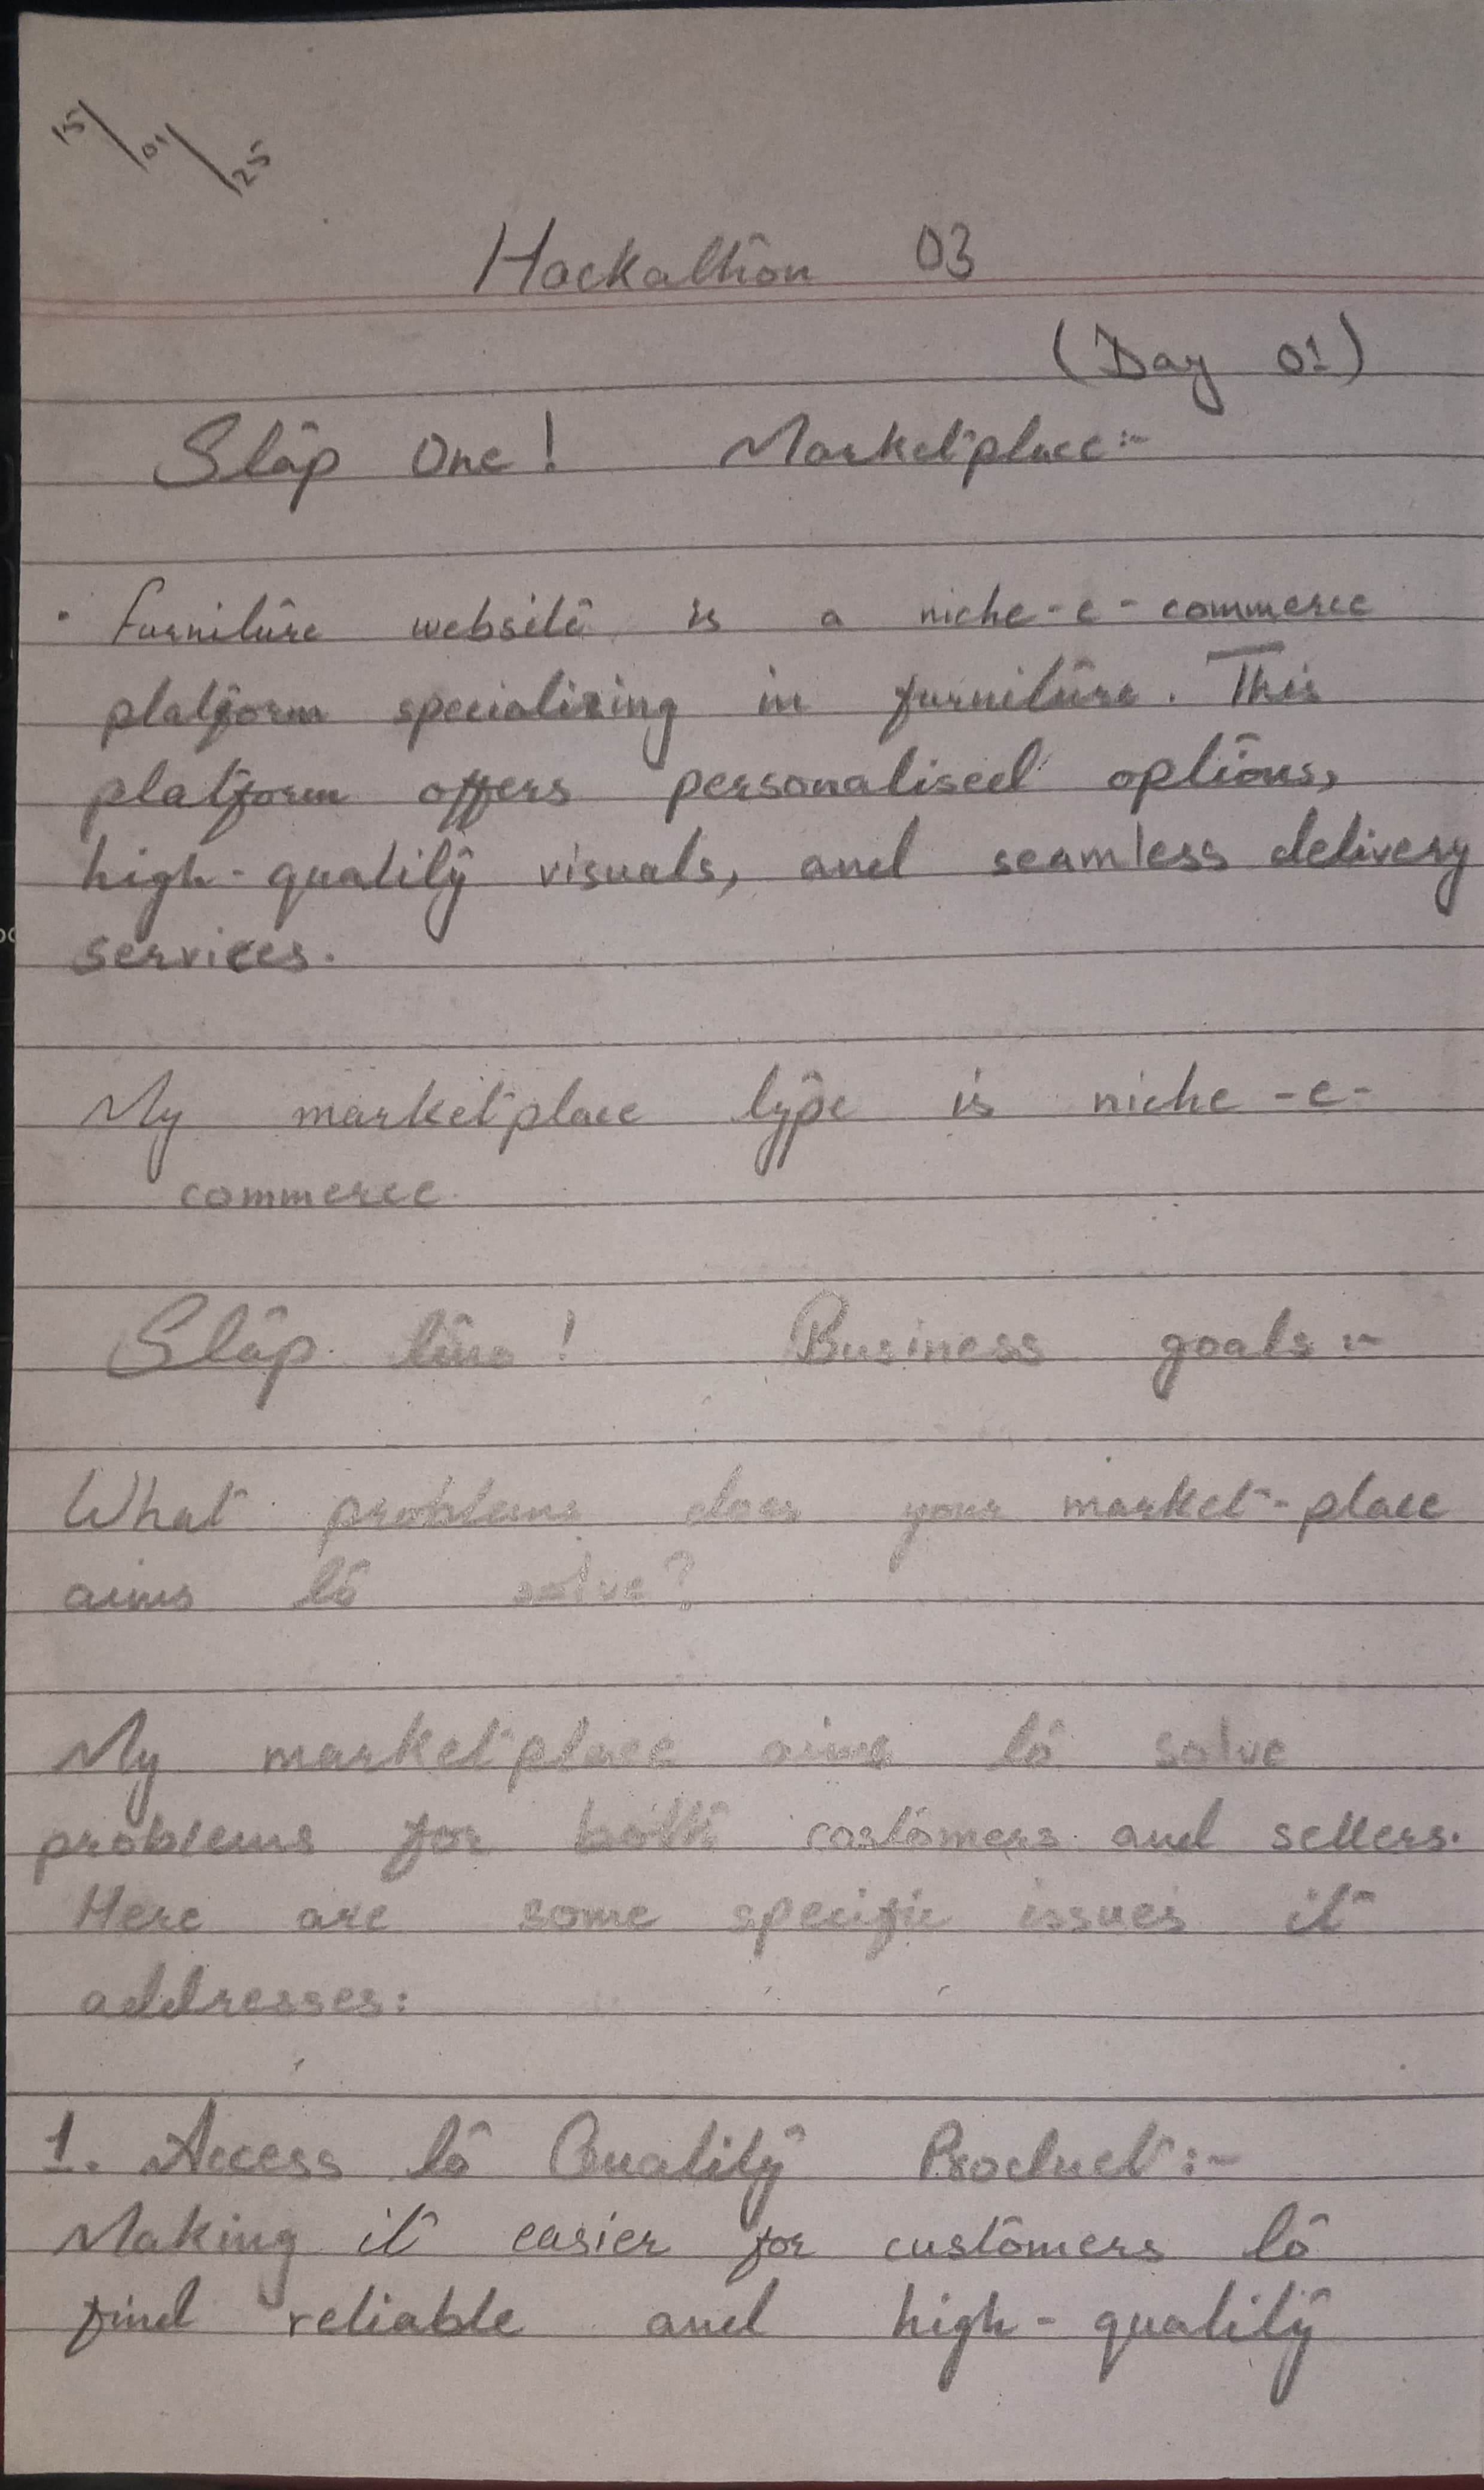 15/01/25
Hackathon 03
(Day 01)
Step One! Marketplace:-
· Furniture website is a niche-e-commerce
platform specializing in furniture. This
platform offers personalised options,
high-quality visuals, and seamless delivery
services.
My marketplace type is niche -e-
commerce
Step two! Business goals:-
What problems does your market-place
aims to solve?
My marketplace aims to solve
problems for both costomers and sellers.
Here are some specific issues it
addresses:
1. Access to Quality Product:-
Making it easier for customers to
find reliable and high-quality